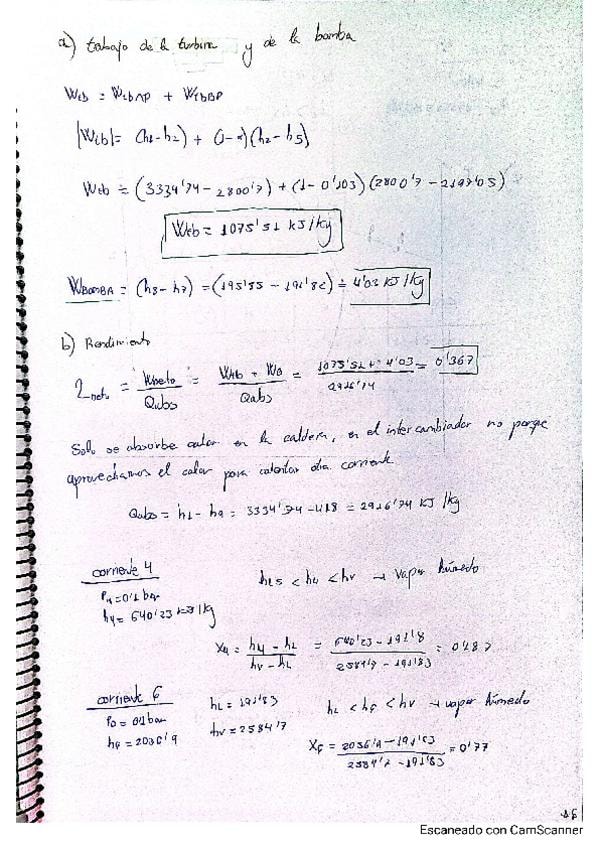 a) trabajo de la turbina y de la bomba
Wtb = WtbAP + WtbBP
|Wtb| = (h1-h2) + (1-α)(h2-h5)
Wtb = (3334'74 - 2800'7) + (1-0'103)(2800'7 - 2197'05)
Wtb = 1075'51 kJ/kg
WBOMBA = (h8-h7) = (195'85 - 191'82) = 4'03 KJ/kg
b) Rendimiento
ηneto = Wneto / Qabs = Wtb - WB / Qabs = 1075'51 + 4'03 / 2916'74 = 0'367
Solo se absorbe calor en la caldera, en el intercambiador no porque
aprovechamos el calor para calentar otra corriente
Qabs = h1 - h9 = 3334'74 - 418 = 2916'74 KJ/kg
corriente 4
P4 = 0'1 bar
h4 = 640'23 KJ/kg
hLS < h4 < hv → vapor húmedo
X4 = h4 - hL / hv - hL = 640'23 - 191'8 / 2584'7 - 191'83 = 0'187
corriente 6
P6 = 0'1 bar
h6 = 2036'9
hL = 191'83
hv = 2584'7
hL < h6 < hv → vapor húmedo
X6 = 2036'9 - 191'83 / 2584'7 - 191'83 = 0'77
16
Escaneado con CamScanner